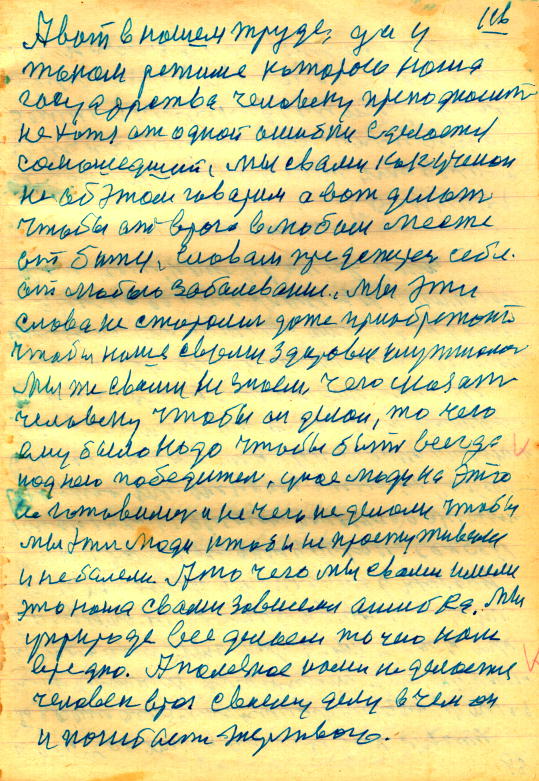 116
А вот в нашем труде, да и
таком режиме которого наша
государства человеку преподносит
не хотя от одной ошибки сделается
сомошедший, мы свами как ученои
не об этом говарим а вот делать
чтобы от врага в любом месте
отбится, словам придетеречь себя.
от любыю заболевание. Мы эти
слова не старолись даже приобретать
чтобы наше свами здоровие
Мы же свами не знаем, чего сказать
человеку чтобы он делал, то чего
ему было надо чтобы быть всегда
над нею победител, люди на это
не готовились и не чего не делали чтобы
мы эти люди чтобы не простуживали
и не балели А то чего мы свами имели
это наша свами зависемя ашибка. Мы
уприроде все делаем то что нам
вредно. А полезное нами не делается
человек враг своему делу в чем он
и погибает жертвою.